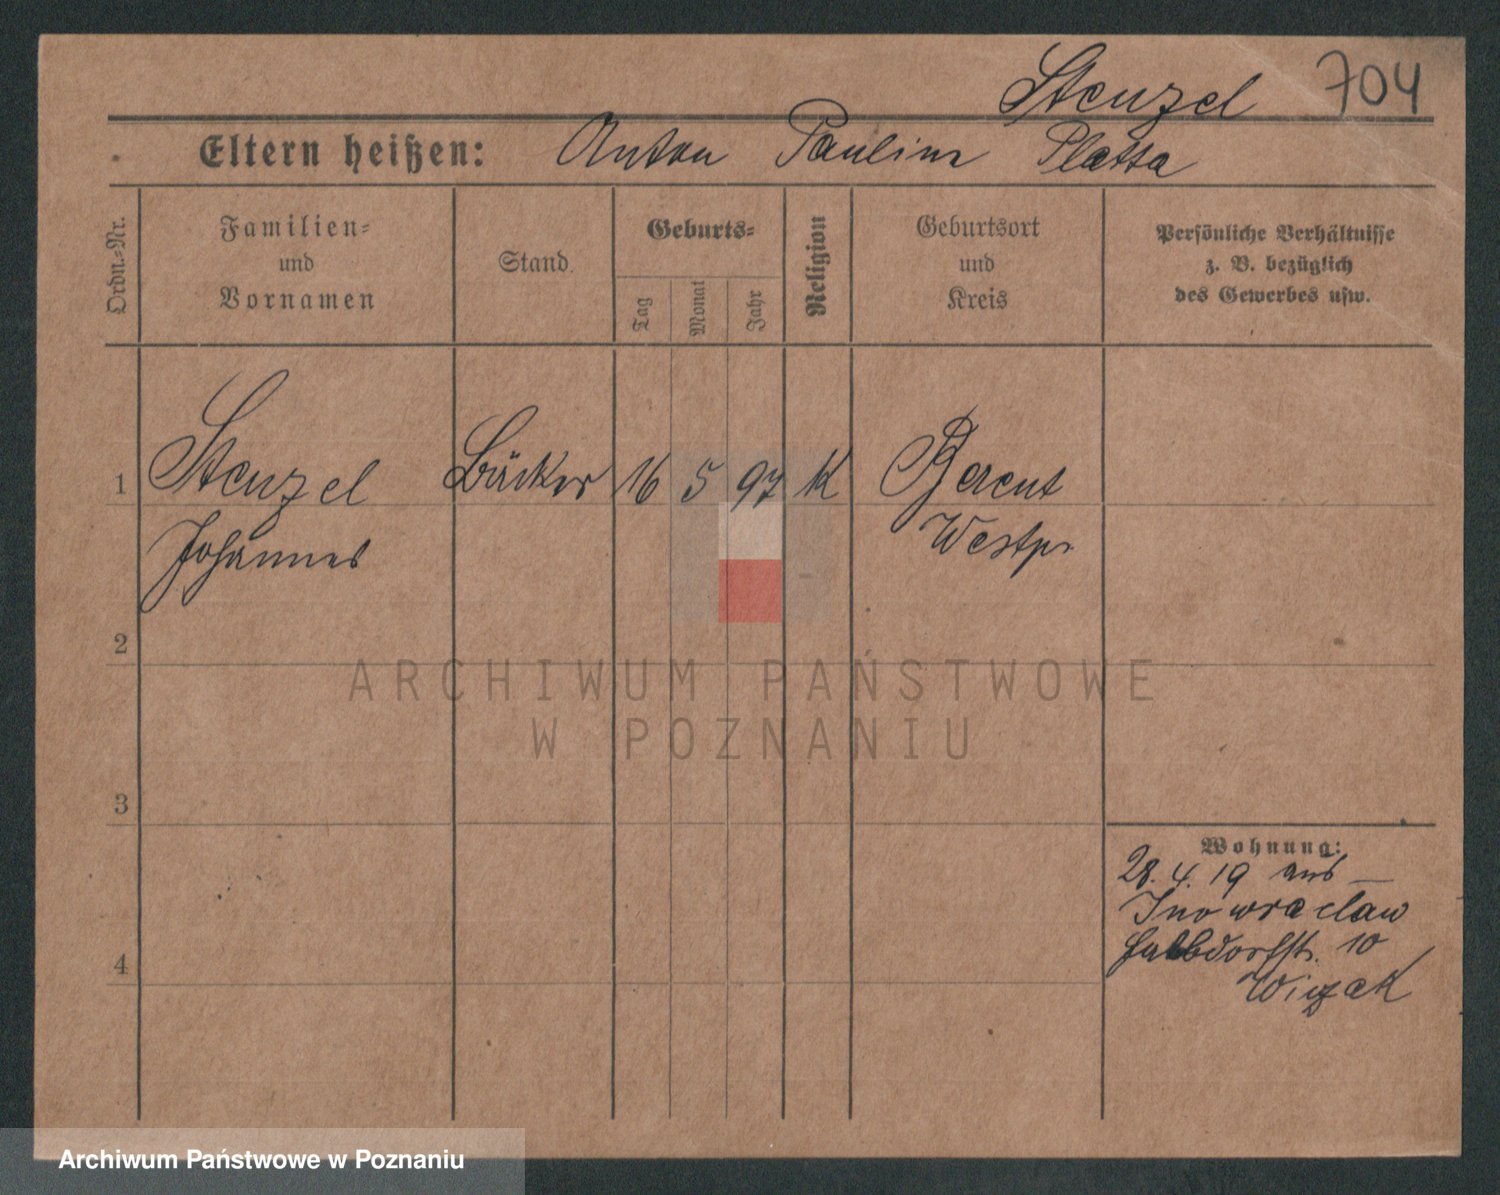 Stenzel 704
Eltern heißen: Anton Pauline Platta
Ordn.=Nr.
Familien=
und
Vornamen
Stand
Geburts=
Tag
Monat
Jahr
Religion
Geburtsort
und
Kreis
Persönliche Verhältnisse
z. B. bezüglich
des Gewerbes usw.
1 Stenzel Bäcker 16 5 97 K Berent
Johannes Westpr
2
3
4
Wohnung:
28. 4. 19 aus –
Inowraclaw
10
ARCHIWUM PAŃSTWOWE
W POZNANIU
Archiwum Państwowe w Poznaniu